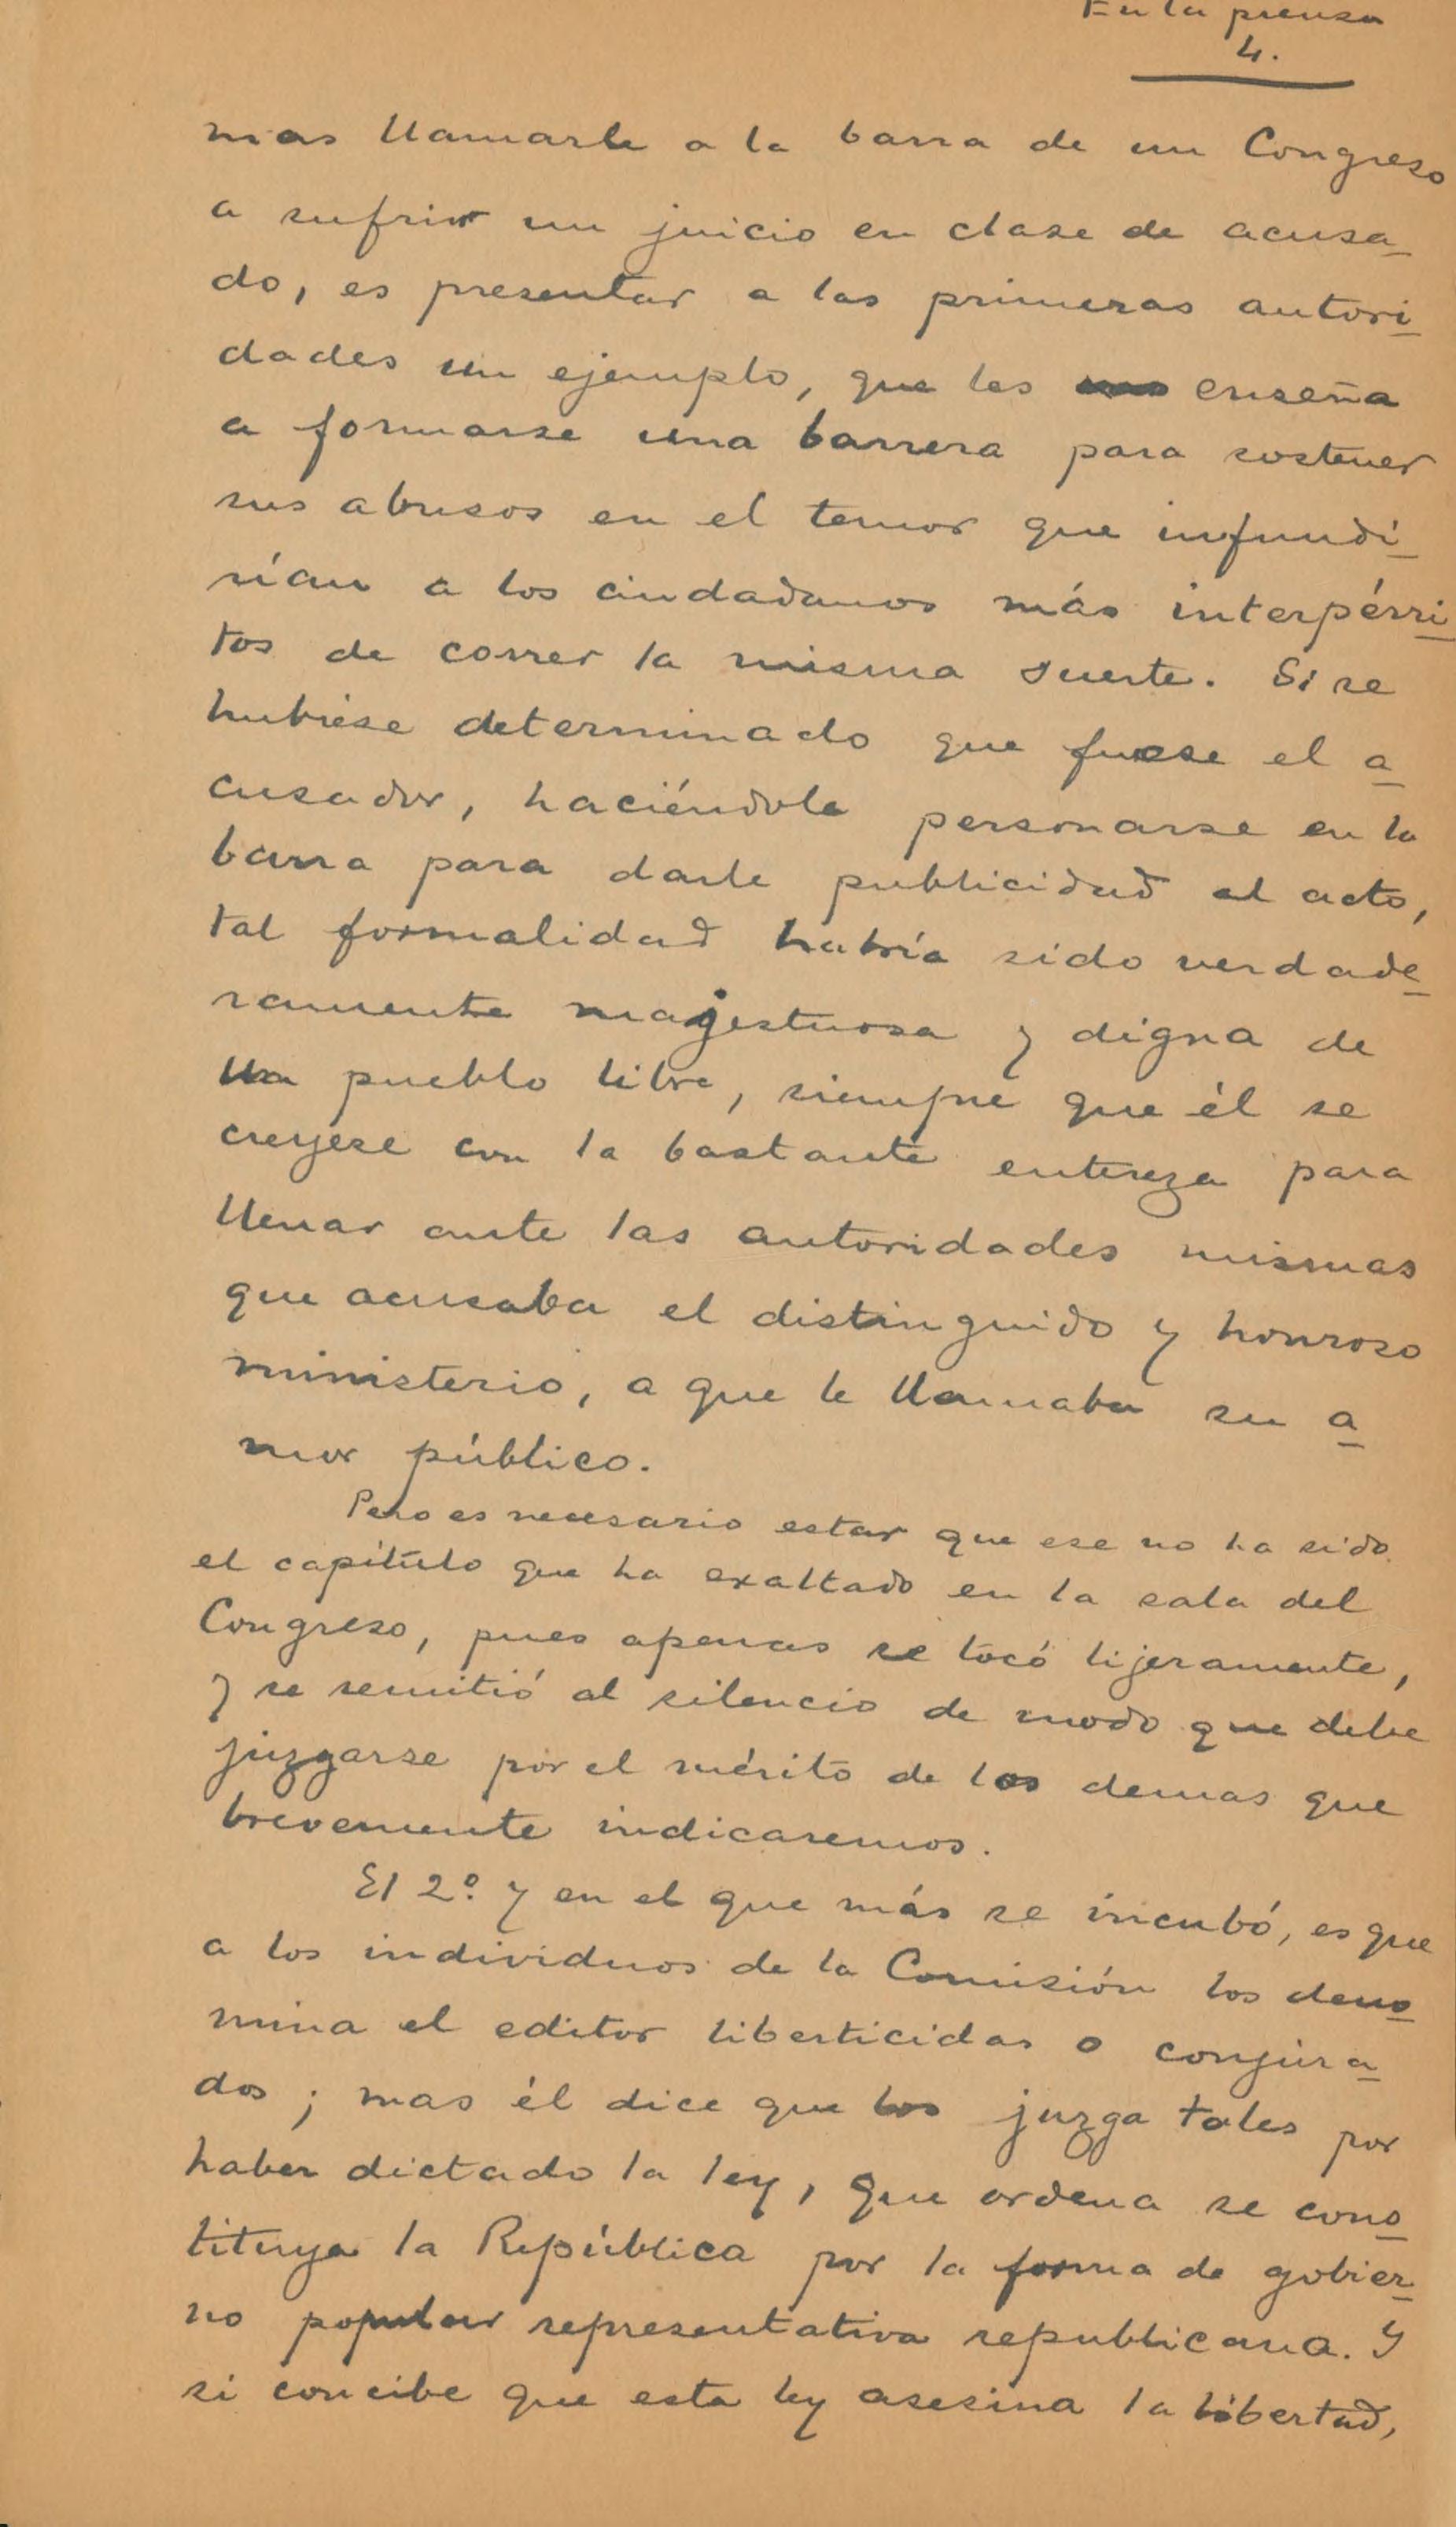 En la prensa
4.
mas llamarle a la barra de un Congreso
a sufrir un juicio en clase de acusa_
do, es presentar a las primeras autori_
dades un ejemplo, que les enseña
a formarse una barrera para sostener
sus abusos en el temor que infundi_
rían a los ciudadanos más interpérri_
tos de correr la misma suerte. Si se
hubiése determinado que fuese el a_
cusador, haciéndole personarse en la
barra para darle publicidad al acto,
tal formalidad habría sido verdade_
ramente majestuosa y digna de
un pueblo libre, siempre que él se
creyese con la bastante entereza para
llenar ante las autoridades mismas
que acusaba el distinguido y honroso
ministerio, a que le llamaba su a_
mor público.
Pero es necesario estar que ese no ha sido
el capítulo que ha exaltado en la sala del
Congreso, pues apenas se tocó lijeramente,
y se remitió al silencio de modo que debe
juzgarse por el mérito de los demas que
brevemente indicaremos.
El 2º. y en el que más se incubó, es que
a los individuos de la Comisión los deno_
mina el editor liberticidas o conjura_
dos; mas él dice que los juzga tales por
haber dictado la ley, que ordena se cons_
tituya la República por la forma de gobier_
no popular representativa republicana. Y
si concibe que esta ley asesina la libertad,